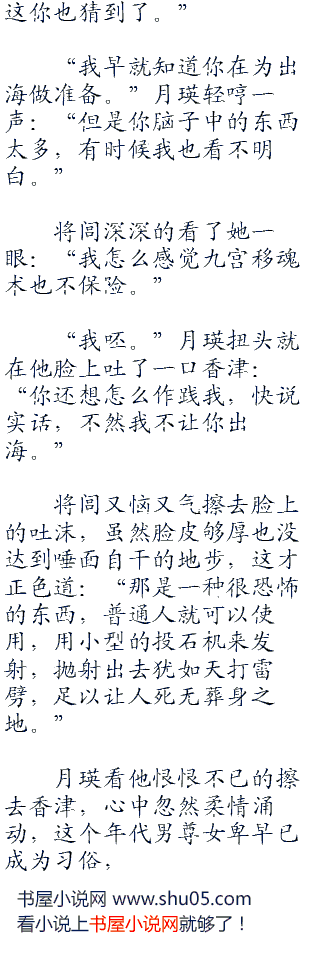 这你也猜到了。”
“我早就知道你在为出
海做准备。”月瑛轻哼一
声：“但是你脑子中的东西
太多，有时候我也看不明
白。”
将闾深深的看了她一
眼：“我怎么感觉九宫移魂
术也不保险。”
“我呸。”月瑛扭头就
在他脸上吐了一口香津：
“你还想怎么作践我，快说
实话，不然我不让你出
海。”
将闾又恼又气擦去脸上
的吐沫，虽然脸皮够厚也没
达到唾面自干的地步，这才
正色道：“那是一种很恐怖
的东西，普通人就可以使
用，用小型的投石机来发
射，抛射出去犹如天打雷
劈，足以让人死无葬身之
地。”
月瑛看他恨恨不已的擦
去香津，心中忽然柔情涌
动，这个年代男尊女卑早已
成为习俗，
书屋小说网 www.shu05.com
看小说上书屋小说网就够了！